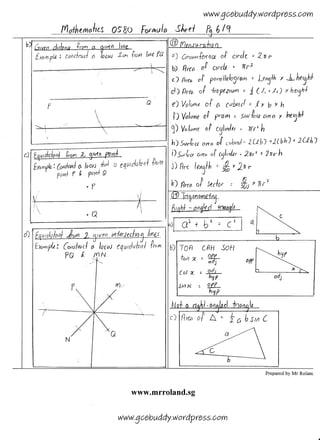 www.gcebuddy.wordpress.com
Mathematics 0580 Formula Sheet Pg 6/9
b) Given distance from a given line
Example: Construct a locus 2cm from line PQ
P Q
c) Equidistant from 2 given point
Example: Construct a locus that is equidistant from
point P & point Q
• P
• Q
d) Equidistant from 2 given intersecting lines
Example: Construct a locus equidistant from
PQ & MN
P M
N Q
Mensuration
a) Circumference of circle = 2πr
b) Area of circle = πr²
c) Area of parallelogram = Length x ⊥ height
d) Area of trapezium = ½ (l₁ + l₂) x height
e) Volume of a cuboid = l x b x h
f) Volume of prism = surface area x height
g) Volume of cylinder = πr²h
h) Surface area of cuboid = 2(lb) + 2(bh) + 2(lh)
i) Surface area of cylinder = 2πr² + 2πrh
j) Arc length = θ/360 x 2πr
k) Area of sector = θ/360 x πr²
Trigonometry
Right-angled triangle
a) a² + b² = c²
a c b
b) TOA CAH SOH
tan x = opp/adj
cos x = adj/hyp
sin x = opp/hyp
opp hyp x adj
Not a right-angled triangle
c) Area of Δ = ½ a b sin C
a
C
b
Prepared by Mr Rolam
www.mrroland.sg
www.gcebuddy.wordpress.com